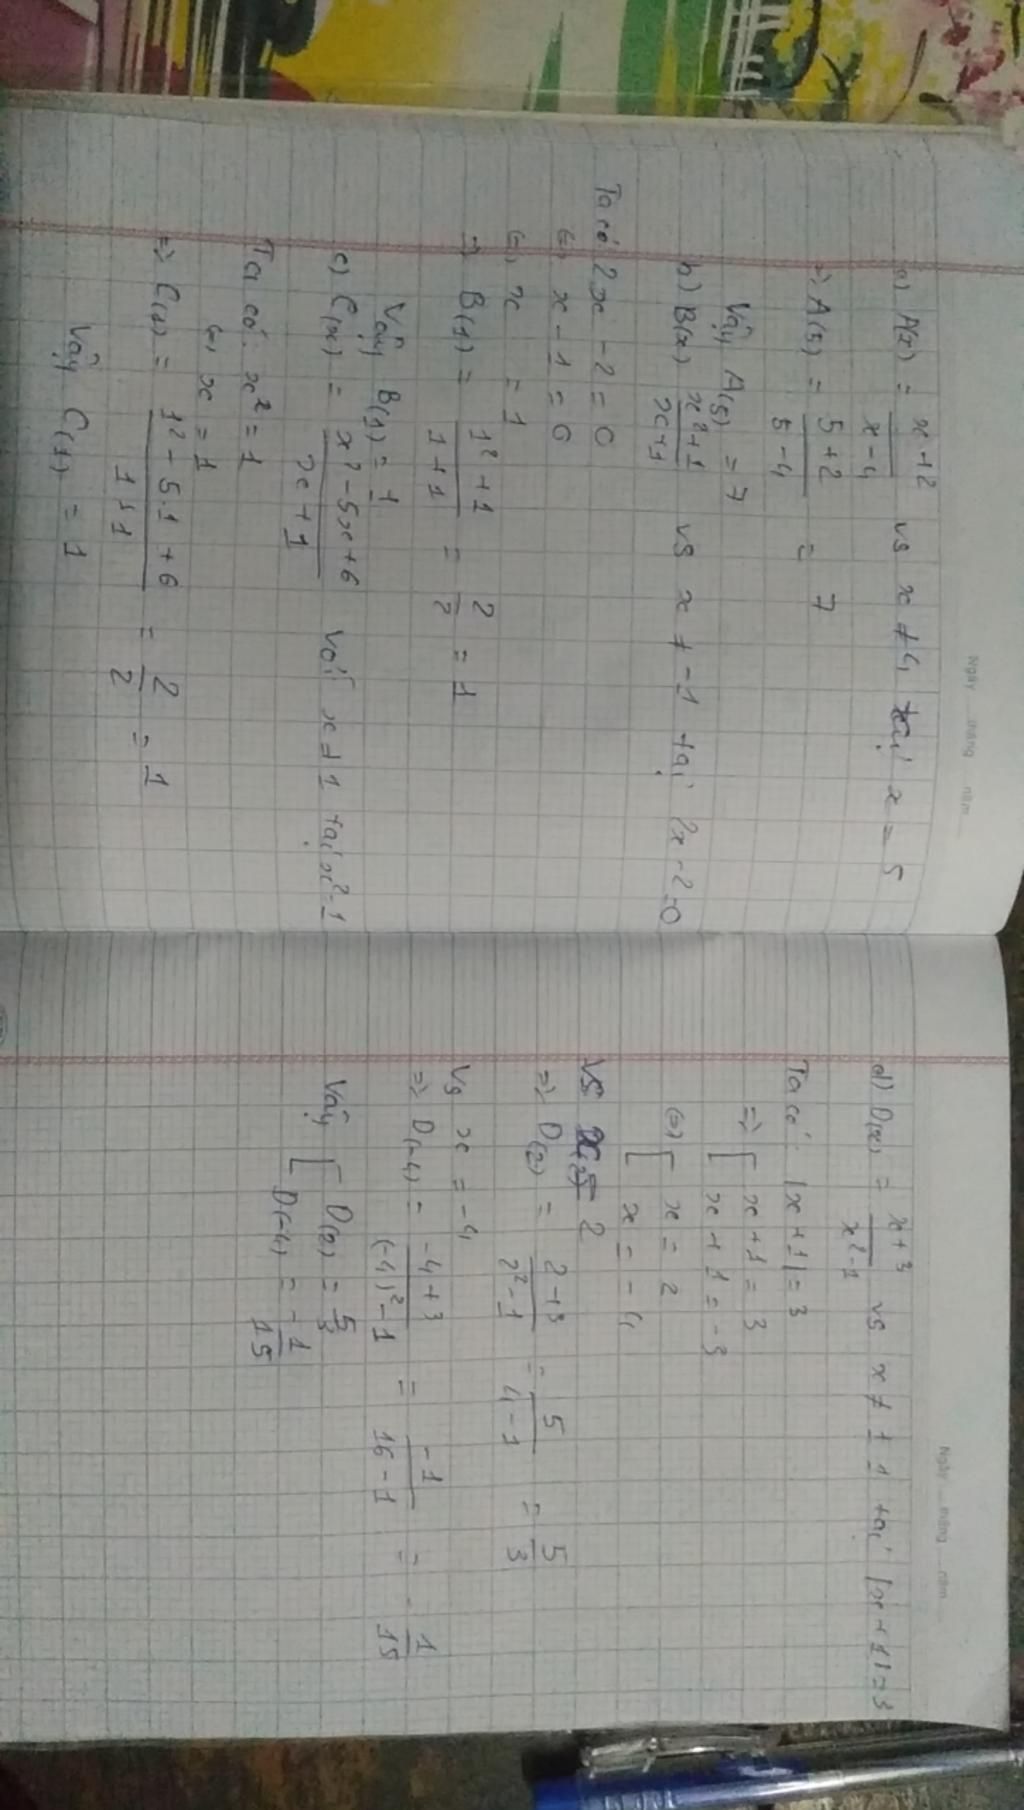 Ngày ..... tháng ..... năm .....
a) A(x) = \frac{x+2}{x-4} vs x ≠ 4, tại x = 5
=> A(5) = \frac{5+2}{5-4} = 7
Vậy A(5) = 7
b) B(x) \frac{x^2+1}{x+1} vs x ≠ -1 tại 2x-2=0
Ta có 2x - 2 = 0
<=> x - 1 = 0
<=> x = 1
=> B(1) = \frac{1^2+1}{1+1} = \frac{2}{2} = 1
Vậy B(1) = 1
c) C(x) = \frac{x^2-5x+6}{x+1} Với x ≠ 1 tại x^2=1
Ta có: x^2 = 1
<=> x = 1
=> C(1) = \frac{1^2-5.1+6}{1+1} = \frac{2}{2} = 1
Vậy C(1) = 1
Ngày ..... tháng ..... năm .....
d) D(x) = \frac{x+3}{x^2-1} vs x ≠ ±1 tại |x+1|=3
Ta có: |x+1| = 3
=> [ x+1 = 3
x+1 = -3
<=> [ x = 2
x = -4
Vs 2
=> D(2) = \frac{2+3}{2^2-1} = \frac{5}{4-1} = \frac{5}{3}
Vs x = -4
=> D(-4) = \frac{-4+3}{(-4)^2-1} = \frac{-1}{16-1} = -\frac{1}{15}
Vậy [ D(2) = \frac{5}{3}
D(-4) = -\frac{1}{15}